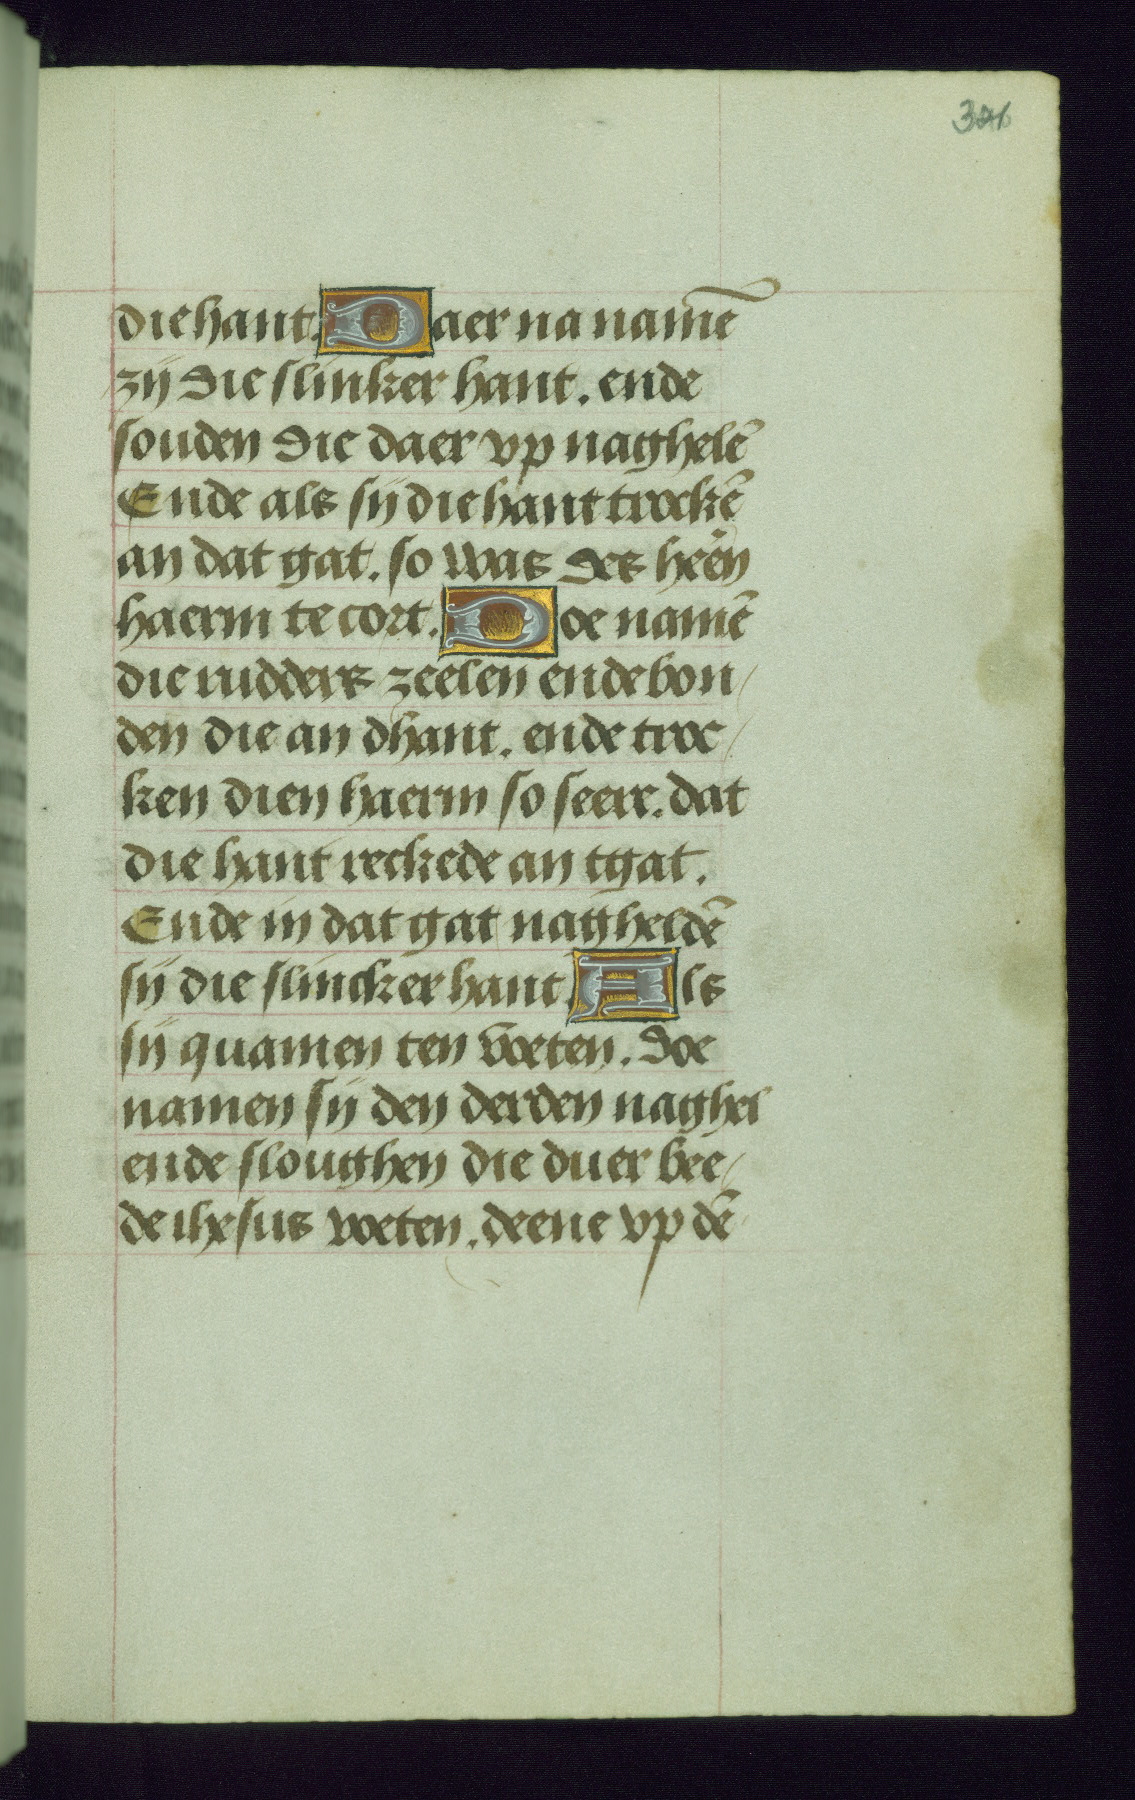 die hant. Daer na namē
zij die slinker hant. ende
souden die daer vp naghelē
Ende als sij die hant trockē
an dat gat. so was des heēn
haerm te cort. Doe namē
die rudders zeelen ende bon/
den die an dhant. ende troc/
ken dien haerm so seere. dat
die hant reckede an tgat.
Ende in dat gat nagheldē
sij die slincker hant. Als
sij quamen ten voeten. Doe
namen sij den derden naghel
ende sloughen die duer bee/
de ihesus voeten. deene vp dē